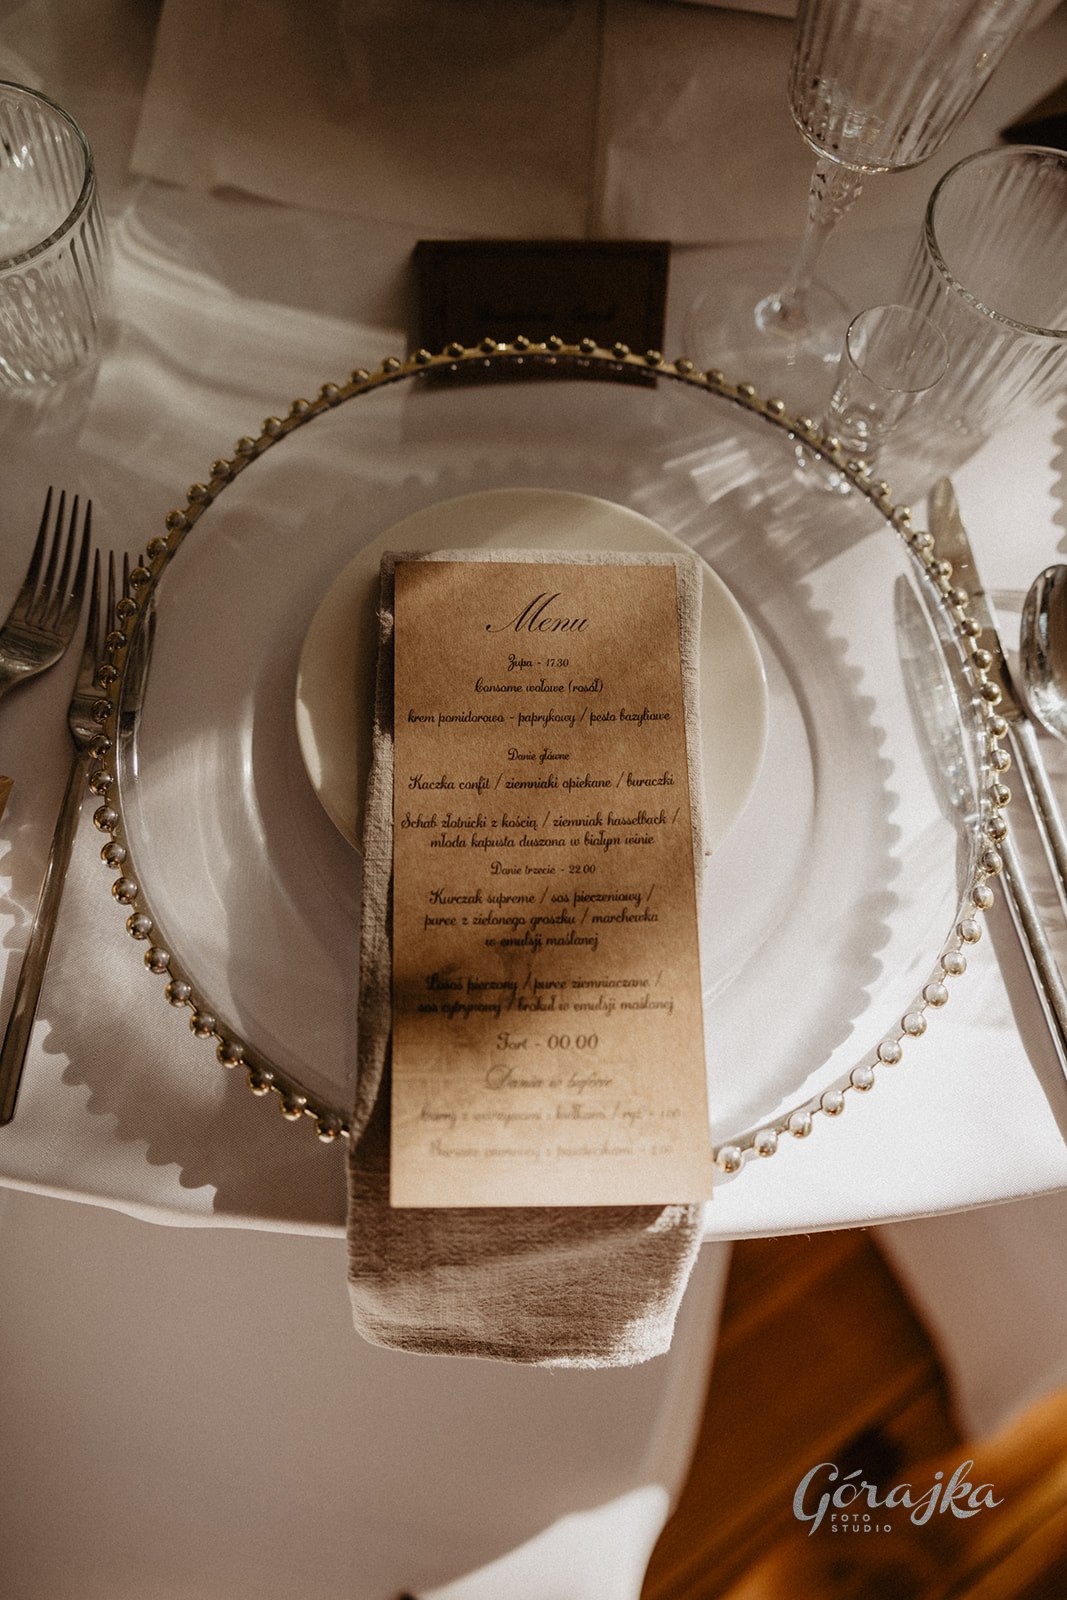 Menu
Zupa - 17.30
Consome wołowe (rosół)
krem pomidorowo - paprykowy / pesto bazyliowe
Danie główne
Kaczka confit / ziemniaki opiekane / buraczki
Schab złotnicki z kością / ziemniak hasselback /
młoda kapusta duszona w białym winie
Danie trzecie - 22.00
Kurczak supreme / sos pieczeniowy /
puree z zielonego groszku / marchewka
w emulsji maślanej
Łosoś pieczony / puree ziemniaczane /
sos cytrynowy / brokuł w emulsji maślanej
Tort - 00.00
Dania w bufecie
z warzywami / ryż - 1.00
z pasztecikami - 2.00
Górajka
FOTO
STUDIO